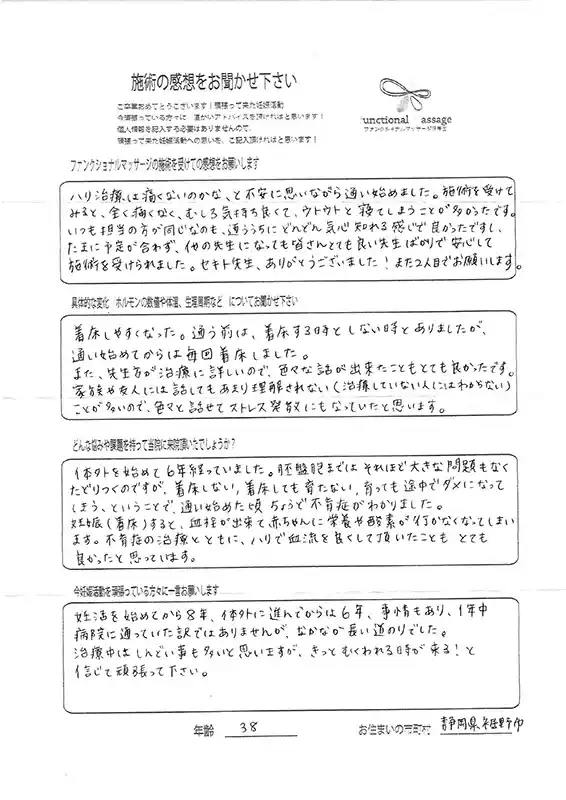 施術の感想をお聞かせ下さい
ご卒業おめでとうございます！頑張って来た妊娠活動
今頑張っている方々に　温かいアドバイスを頂ければと思います！
個人情報を記入する必要はありませんので、
頑張って来た妊娠活動への思いを、ご記入頂ければと思います！
unctional assage
ファンクショナルマッサージ
ファンクショナルマッサージの施術を受けての感想をお願いします
ハリ治療は痛くないのかな、と不安に思いながら通い始めました。施術を受けて
みると、全く痛くなく、むしろ気持ち良くて、ウトウトと寝てしまうことが多かったです。
いつも担当の方が同じなのも、通ううちにどんどん気心知れる感じで良かったですし、
たまに予定が合わず、他の先生になっても皆さんとても良い先生ばかりで安心して
施術を受けられました。セキト先生、ありがとうございました！また2人目でお願いします。
具体的な変化　ホルモンの数値や体温、生理周期など　についてお聞かせ下さい
着床しやすくなった。通う前は、着床する時としない時とありましたが、
通い始めてからは毎回着床しました。
また、先生方が治療に詳しいので、色々な話が出来たこともとても良かったです。
家族や友人には話してもあまり理解されない(治療していない人にはわからない)
ことが多いので、色々と話せてストレス発散にもなっていたと思います。
どんな悩みや課題を持って当院に来院頂いたでしょうか？
体外を始めて6年経っていました。胚盤胞まではそれほど大きな問題もなく
たどりつくのですが、着床しない、着床しても育たない、育っても途中でダメになって
しまう、ということで、通い始めた頃ちょうど不育症がわかりました。
妊娠(着床)すると、血栓が出来て赤ちゃんに栄養や酸素が行かなくなってしまい
ます。不育症の治療とともに、ハリで血流を良くして頂いたことも　とても
良かったと思っています。
今妊娠活動を頑張っている方々に一言お願いします
妊活を始めてから8年、体外に進んでからは6年、事情もあり、1年中
病院に通っていた訳ではありませんが、なかなか長い道のりでした。
治療中はしんどい事も多いと思いますが、きっとむくわれる時が来る！と
信じて頑張って下さい。
年齢　38　お住まいの市町村　静岡県裾野市